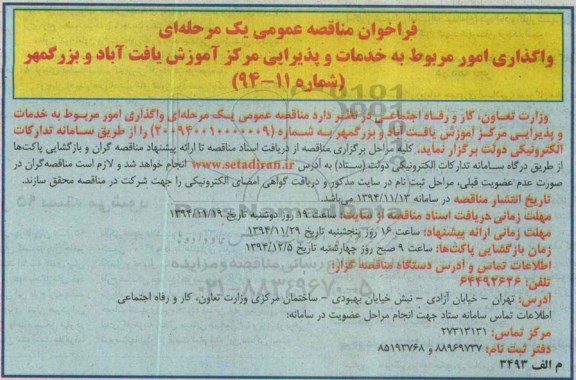 فراخوان مناقصه عمومی یک مرحله‌ای
واگذاری امور مربوط به خدمات و پذیرایی مرکز آموزش یافت آباد و بزرگمهر
(شماره ۱۱-۹۴)
وزارت تعاون، کار و رفاه اجتماعی در نظر دارد مناقصه عمومی یک مرحله‌ای واگذاری امور مربوط به خدمات
و پذیرایی مرکز آموزش یافت آباد و بزرگمهر به شماره (۲۰۰۹۴۰۰۱۰۰۰۰۰۰۹) را از طریق سامانه تدارکات
الکترونیکی دولت برگزار نماید. کلیه مراحل برگزاری مناقصه از دریافت اسناد مناقصه تا ارائه پیشنهاد مناقصه گران و بازگشایی پاکت‌ها
از طریق درگاه سامانه تدارکات الکترونیکی دولت (ستاد) به آدرس www.setadiran.ir انجام خواهد شد و لازم است مناقصه‌گران در
صورت عدم عضویت قبلی، مراحل ثبت نام در سایت مذکور و دریافت گواهی امضای الکترونیکی را جهت شرکت در مناقصه محقق سازند.
تاریخ انتشار مناقصه در سامانه ۱۳۹۴/۱۱/۱۳ می‌باشد.
مهلت زمانی دریافت اسناد مناقصه از سایت: ساعت ۱۹ روز دوشنبه تاریخ ۱۳۹۴/۱۱/۱۹
مهلت زمانی ارائه پیشنهاد: ساعت ۱۶ روز پنجشنبه تاریخ ۱۳۹۴/۱۱/۲۹
زمان بازگشایی پاکت‌ها: ساعت ۹ صبح روز چهارشنبه تاریخ ۱۳۹۴/۱۲/۵
اطلاعات تماس و آدرس دستگاه مناقصه گزار:
تلفن: ۶۴۴۹۲۶۲۶
آدرس: تهران - خیابان آزادی - نبش خیابان بهبودی - ساختمان مرکزی وزارت تعاون، کار و رفاه اجتماعی
اطلاعات تماس سامانه ستاد جهت انجام مراحل عضویت در سامانه:
مرکز تماس: ۲۷۳۱۳۱۳۱
دفتر ثبت نام: ۸۸۹۶۹۷۳۷ و ۸۵۱۹۳۷۶۸
م الف ۳۴۹۳
۰۲۱-۸۸۳۴۹۶۷۰-۵